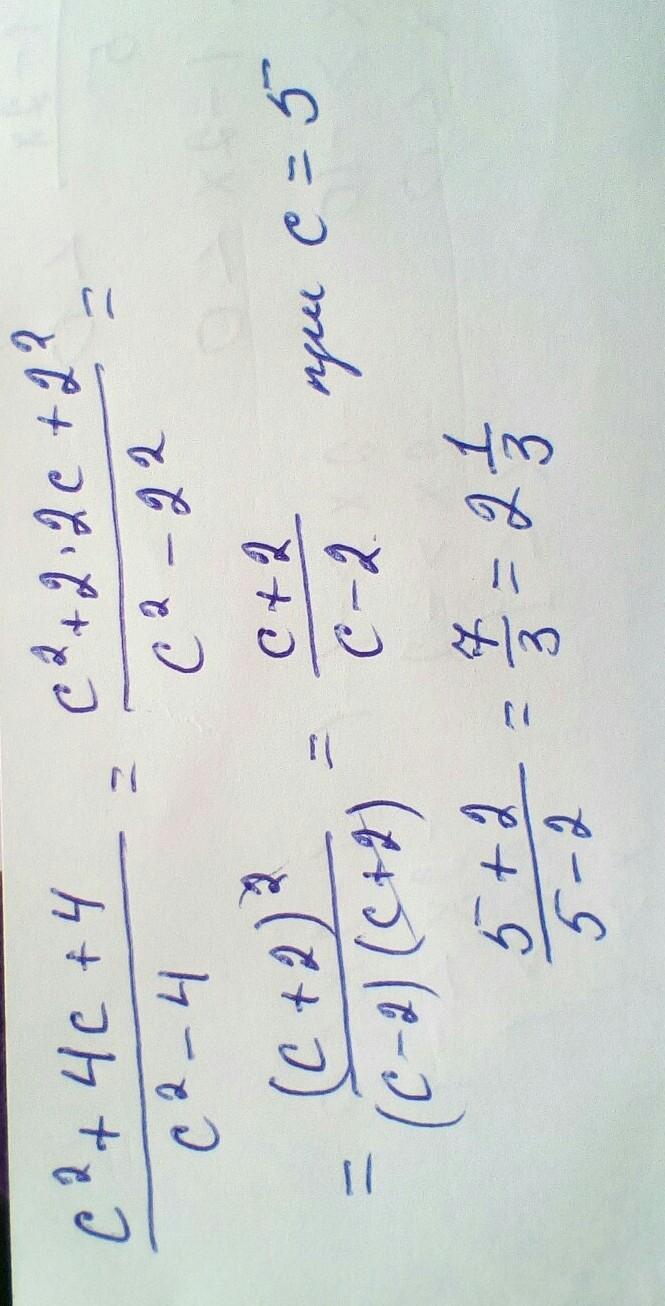 (c² + 4c + 4)/(c² - 4) = (c² + 2·2c + 2²)/(c² - 2²) =
= (c + 2)²/((c - 2)(c + 2)) = (c + 2)/(c - 2) при c = 5
(5 + 2)/(5 - 2) = 7/3 = 2 1/3